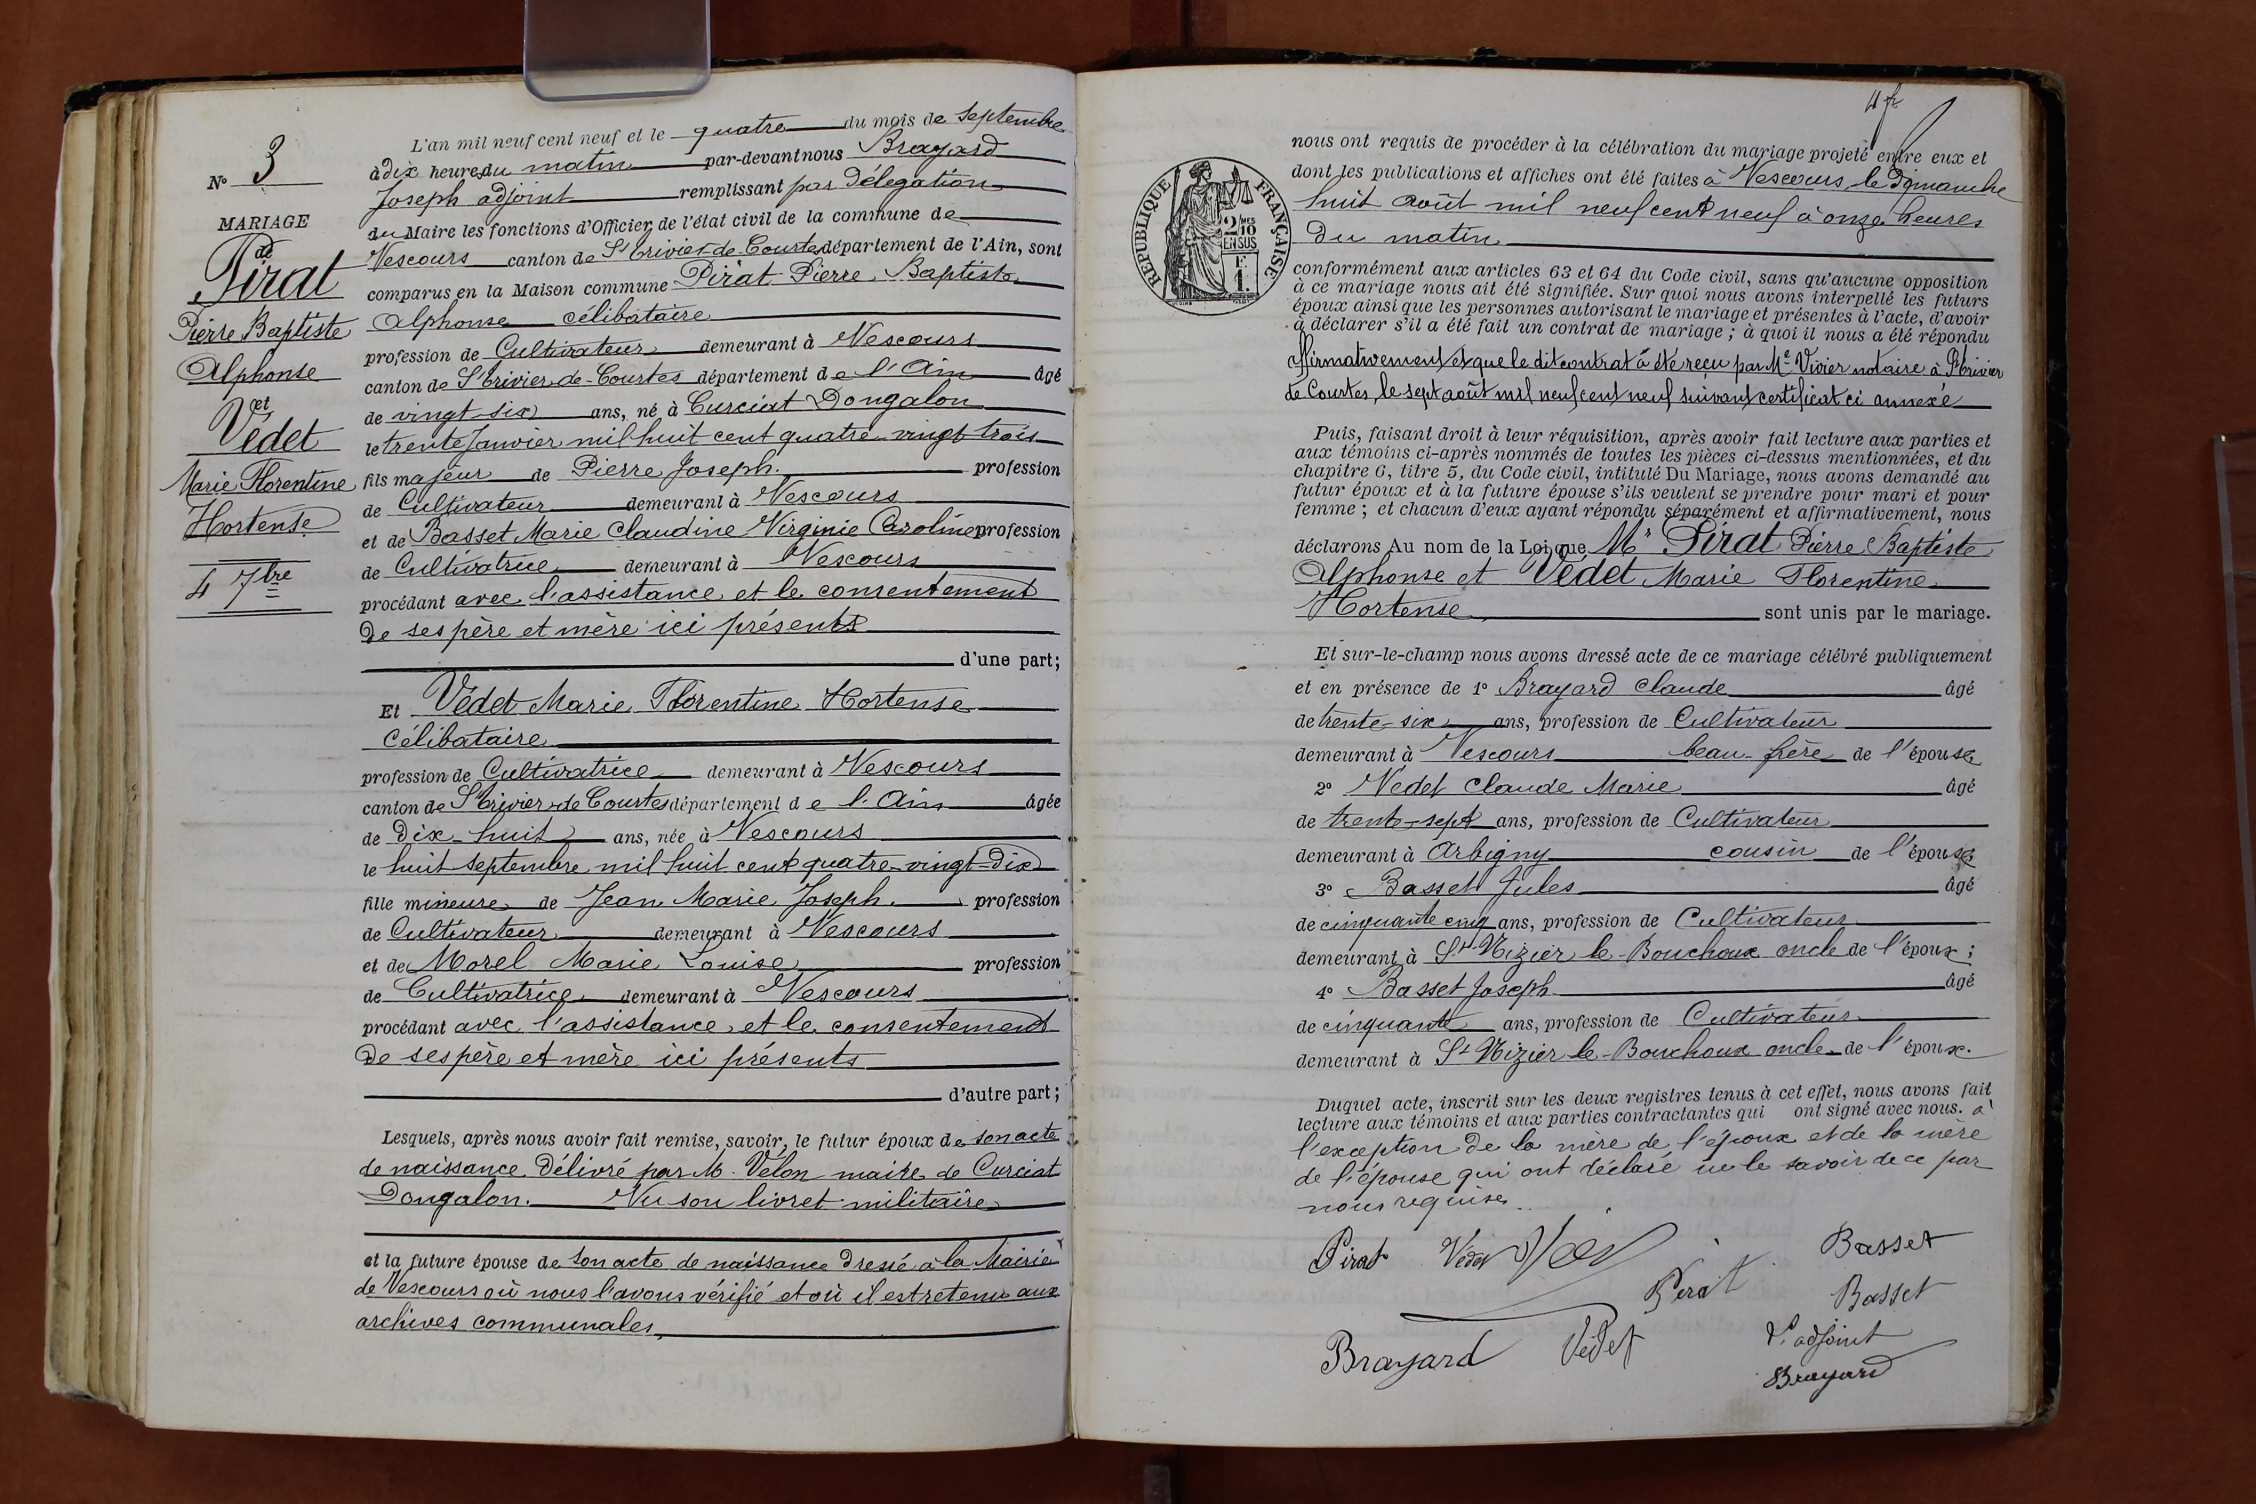 N° 3
MARIAGE
de
Pirat
Pierre Baptiste
Alphonse
et
Védet
Marie Florentine
Hortense
4 7bre
L'an mil neuf cent neuf et le quatre du mois de Septembre
à dix heures du matin par-devant nous Brayard
Joseph adjoint remplissant par Délégation
du Maire les fonctions d'Officier de l'état civil de la commune de
Vescours canton de St Trivier-de-Courtes département de l'Ain, sont
comparus en la Maison commune Pirat Pierre Baptiste
Alphonse célibataire
profession de Cultivateur demeurant à Vescours
canton de St Trivier-de-Courtes département de l'Ain âgé
de vingt-six ans, né à Curciat Dongalon
le trente Janvier mil huit cent quatre-vingt trois
fils majeur de Pierre Joseph profession
de Cultivateur demeurant à Vescours
et de Basset Marie Claudine Virginie Caroline profession
de Cultivatrice demeurant à Vescours
procédant avec l'assistance et le consentement
de ses père et mère ici présents
d'une part;
Et Védet Marie Florentine Hortense
célibataire
profession de Cultivatrice demeurant à Vescours
canton de St Trivier-de-Courtes département de l'Ain âgée
de Dix-huit ans, née à Vescours
le huit septembre mil huit cent quatre-vingt-dix
fille mineure de Jean Marie Joseph profession
de Cultivateur demeurant à Vescours
et de Morel Marie Louise profession
de Cultivatrice demeurant à Vescours
procédant avec l'assistance et le consentement
de ses père et mère ici présents
d'autre part;
Lesquels, après nous avoir fait remise, savoir, le futur époux de son acte
de naissance délivré par M. Vélon maire de Curciat
Dongalon. Vu son livret militaire
et la future épouse de son acte de naissance dressé à la Mairie
de Vescours où nous l'avons vérifié et où il est retenu aux
archives communales.
4 f
RÉPUBLIQUE FRANÇAISE
2/10
EN SUS
F.
1.
nous ont requis de procéder à la célébration du mariage projeté entre eux et
dont les publications et affiches ont été faites à Vescours, le Dimanche
huit août mil neuf cent neuf à onze heures
du matin
conformément aux articles 63 et 64 du Code civil, sans qu'aucune opposition
à ce mariage nous ait été signifiée. Sur quoi nous avons interpellé les futurs
époux ainsi que les personnes autorisant le mariage et présentes à l'acte, d'avoir
à déclarer s'il a été fait un contrat de mariage; à quoi il nous a été répondu
affirmativement et que le dit contrat a été reçu par Me Vivier notaire à St Trivier
de Courtes, le sept août mil neuf cent neuf suivant certificat ci annexé
Puis, faisant droit à leur réquisition, après avoir fait lecture aux parties et
aux témoins ci-après nommés de toutes les pièces ci-dessus mentionnées, et du
chapitre 6, titre 5, du Code civil, intitulé Du Mariage, nous avons demandé au
futur époux et à la future épouse s'ils veulent se prendre pour mari et pour
femme; et chacun d'eux ayant répondu séparément et affirmativement, nous
déclarons Au nom de la Loi que Mr Pirat Pierre Baptiste
Alphonse et Védet Marie Florentine
Hortense sont unis par le mariage.
Et sur-le-champ nous avons dressé acte de ce mariage célébré publiquement
et en présence de 1° Brayard Claude âgé
de trente-six ans, profession de Cultivateur
demeurant à Vescours beau-frère de l'épouse
2° Védet Claude Marie âgé
de trente-sept ans, profession de Cultivateur
demeurant à Arbigny cousin de l'épouse
3° Basset Jules âgé
de cinquante cinq ans, profession de Cultivateur
demeurant à St Nizier le-Bouchoux oncle de l'époux;
4° Basset Joseph âgé
de cinquante ans, profession de Cultivateur
demeurant à St Nizier le-Bouchoux oncle de l'époux.
Duquel acte, inscrit sur les deux registres tenus à cet effet, nous avons fait
lecture aux témoins et aux parties contractantes qui ont signé avec nous. à
l'exception de la mère de l'époux et de la mère
de l'épouse qui ont déclaré ne le savoir de ce par
nous requises.
Pirat Védet Basset
Pirat Basset
Brayard Védet L'adjoint
Brayard